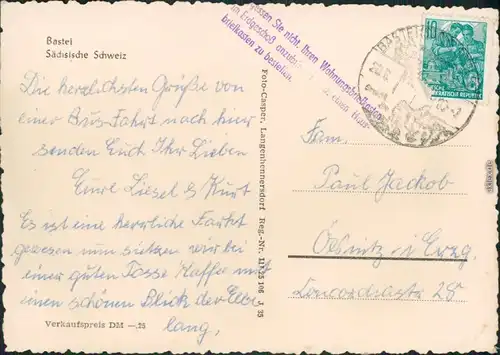 Bastei
Sächsische Schweiz
Die herzlichsten Grüße von
einer Aus-Fahrt nach hier
senden Euch Ihr Lieben
Eure Liesel & Kurt
Es ist eine herrliche Fahrt
gewesen nun sitzen wir bei
einer guten Tasse Kaffee mit
einen schönen Blick der Elbe
lang,
Verkaufspreis DM —.25
Foto-Casper, Langenhennersdorf Reg.-Nr. 111/25 106 J 35
essen Sie nicht, Ihren Wohnungsbriefkasten
im Erdgeschoß anzubringen
briefkasten zu bestellen
BASTEI
10
Fam.
Paul Jackob
Oelsnitz-i Erzg.